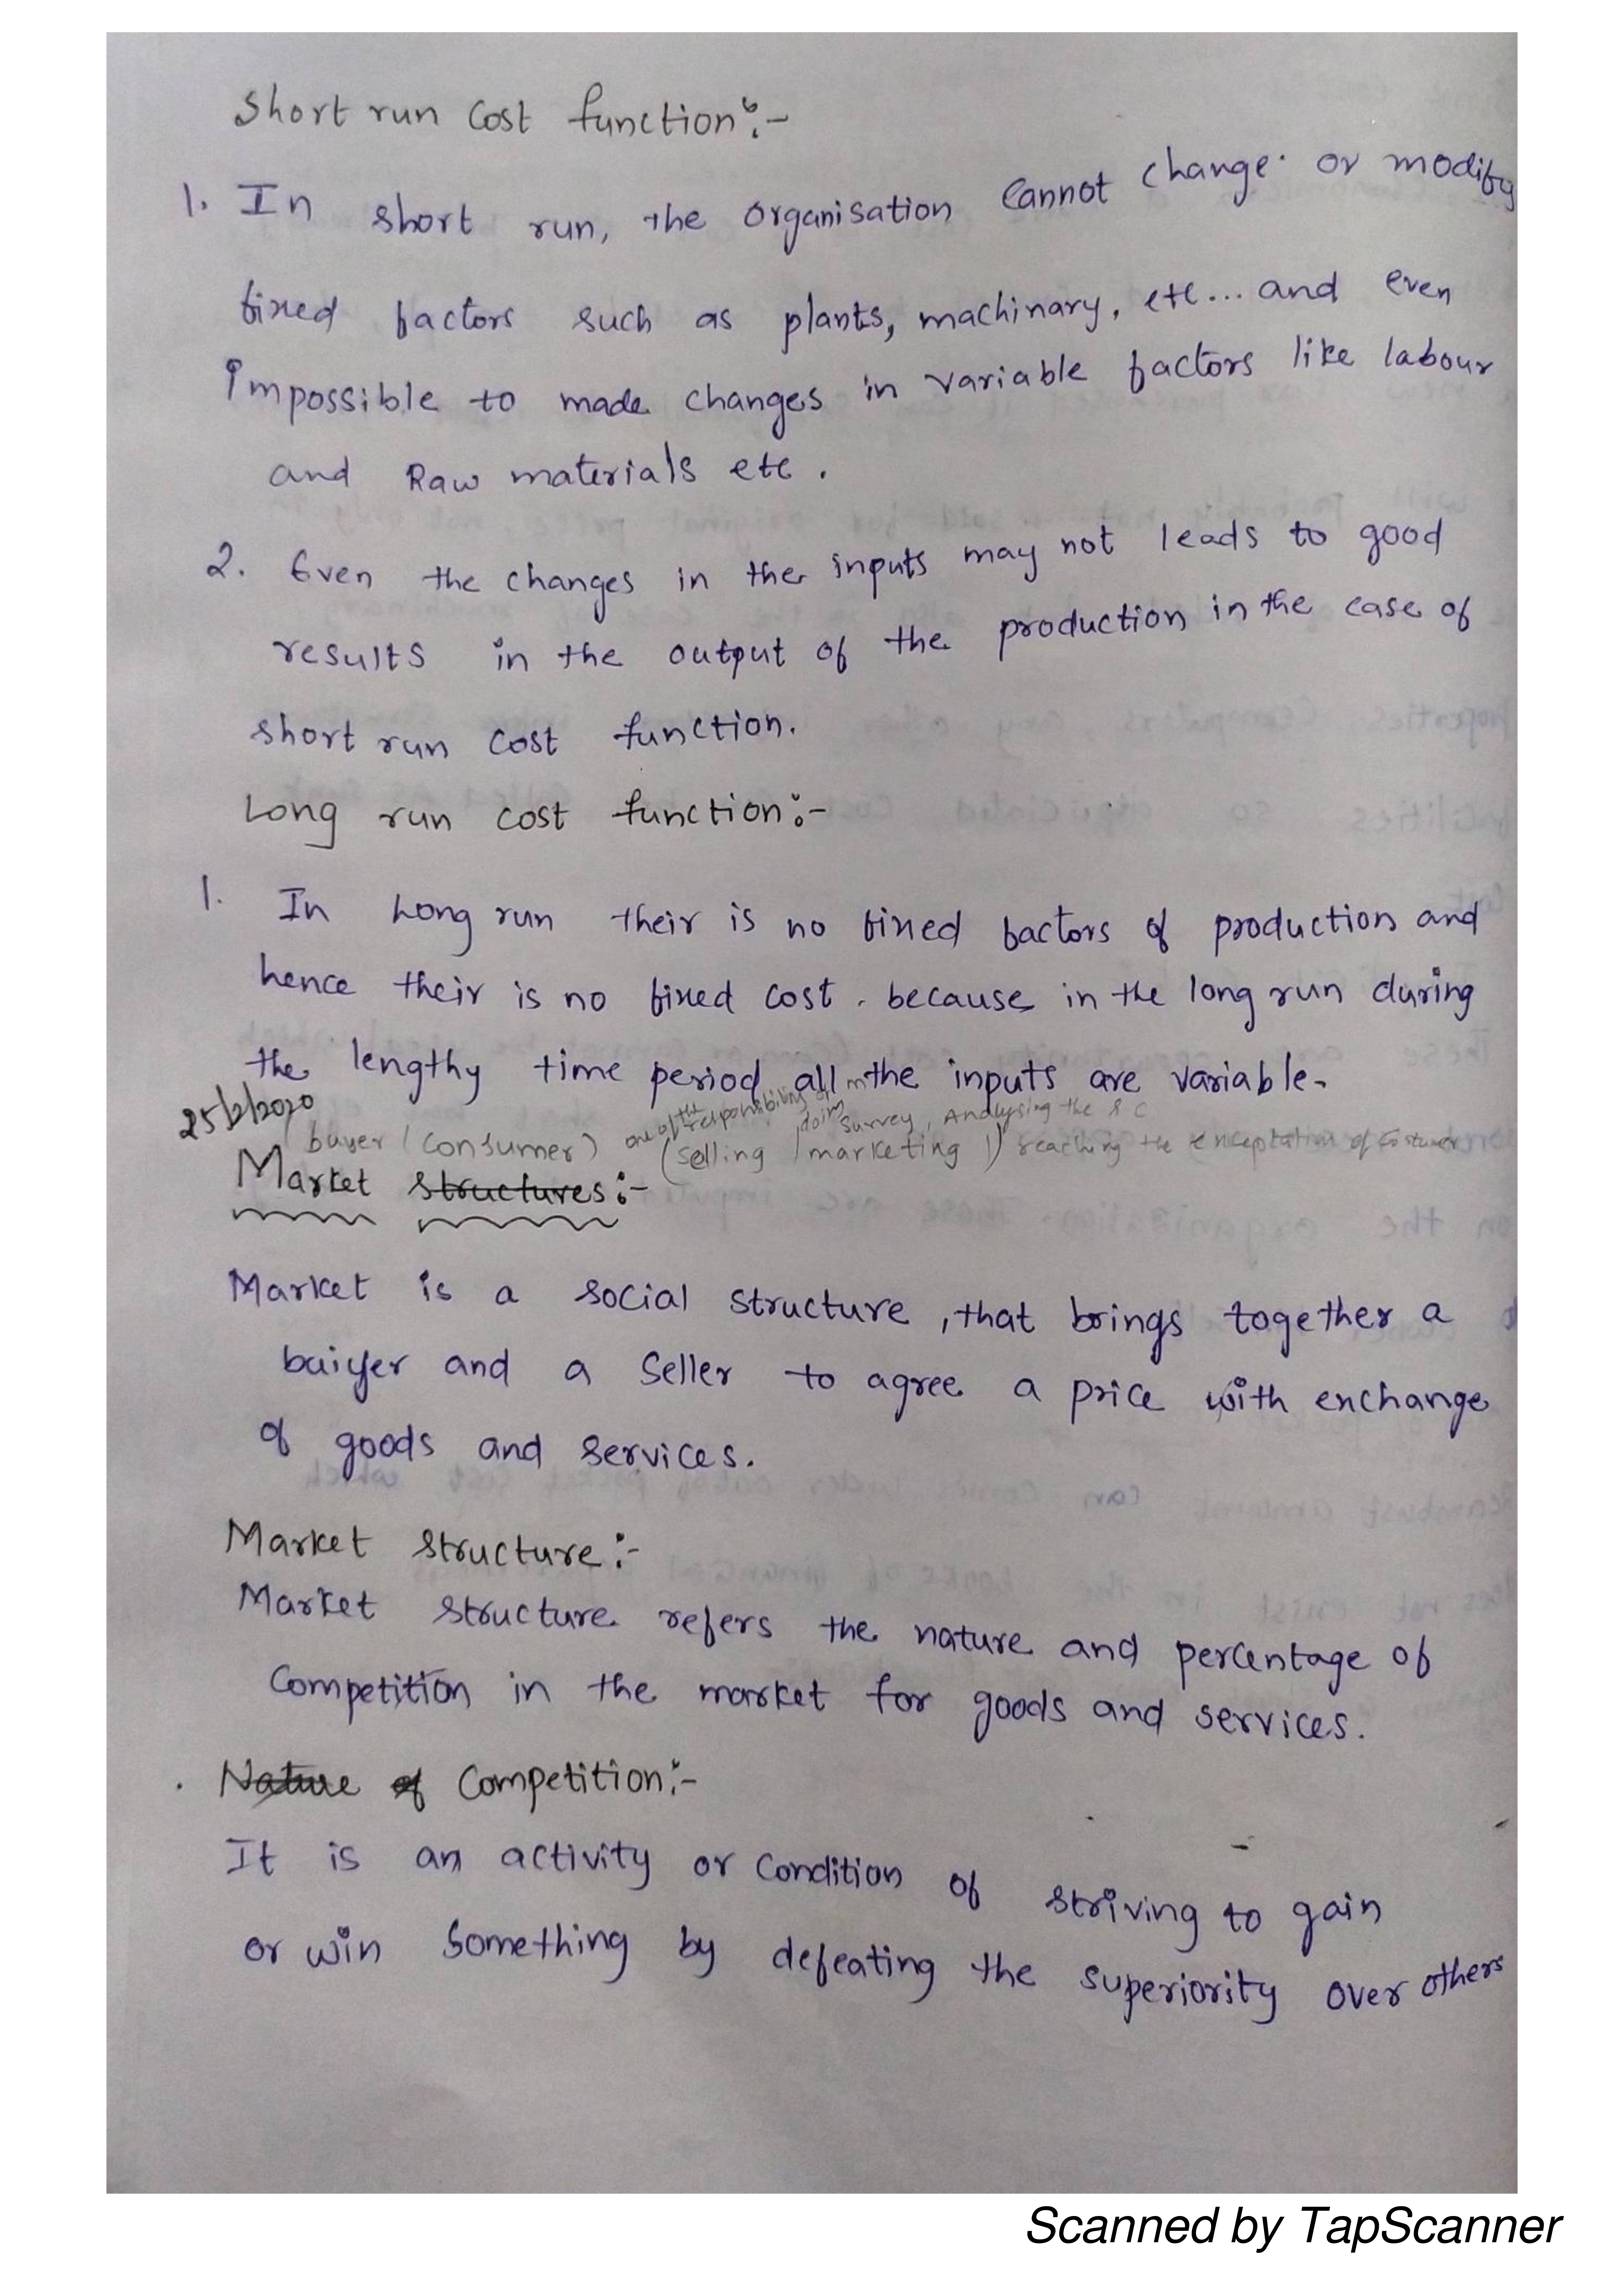 Short run Cost function:-
1. In short run, the organisation cannot change or modify
fixed factors such as plants, machinary, etc... and even
impossible to made changes in variable factors like labour
and Raw materials etc.
2. Even the changes in the inputs may not leads to good
results in the output of the production in the case of
short run cost function.
Long run cost function:-
1. In Long run their is no fixed factors of production and
hence their is no fixed cost. because in the long run during
the lengthy time period all the inputs are variable.
25/2/2020
one of the responsibility of m doing survey, Analysing the
buyer (consumer) (selling / marketing) reaching the of
Market structures:-
Market is a social structure, that brings together a
buiyer and a seller to agree a price with exchange
of goods and services.
Market structure:-
Market structure refers the nature and percentage of
Competition in the market for goods and services.
Nature of Competition:-
It is an activity or condition of striving to gain
or win something by defeating the superiority over others
Scanned by TapScanner